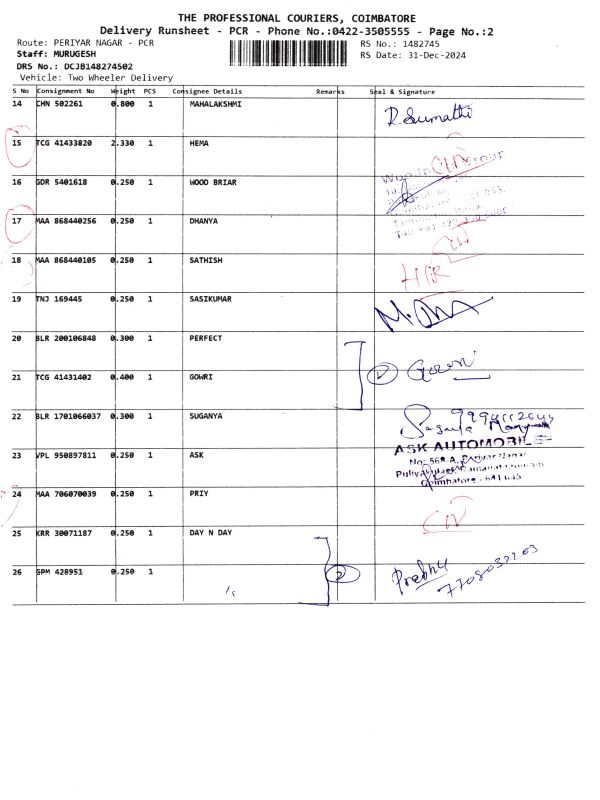 THE PROFESSIONAL COURIERS, COIMBATORE
Delivery Runsheet - PCR - Phone No.:0422-3505555 - Page No.:2
Route: PERIYAR NAGAR - PCR RS No.: 1482745
Staff: MURUGESH RS Date: 31-Dec-2024
DRS No.: DCJB148274502
Vehicle: Two Wheeler Delivery
S No Consignment No Weight PCS Consignee Details Remarks Seal & Signature
14 CHN 502261 0.800 1 MAHALAKSHMI R. Sumathi
15 TCG 41433820 2.330 1 HEMA
16 GDR 5401618 0.250 1 WOOD BRIAR
17 MAA 868440256 0.250 1 DHANYA
18 MAA 868440105 0.250 1 SATHISH
19 TNJ 169445 0.250 1 SASIKUMAR
20 BLR 200106848 0.300 1 PERFECT
21 TCG 41431402 0.400 1 GOWRI 2 Gowri
22 BLR 1701066037 0.300 1 SUGANYA
ASK AUTOMOBILE
23 VPL 950897811 0.250 1 ASK
No: 568 A, Periyar Nagar
Coimbatore - 641 045
24 MAA 706070039 0.250 1 PRIY
25 KRR 30071187 0.250 1 DAY N DAY
26 GPM 428951 0.250 1 2 Prabhu
7708032203